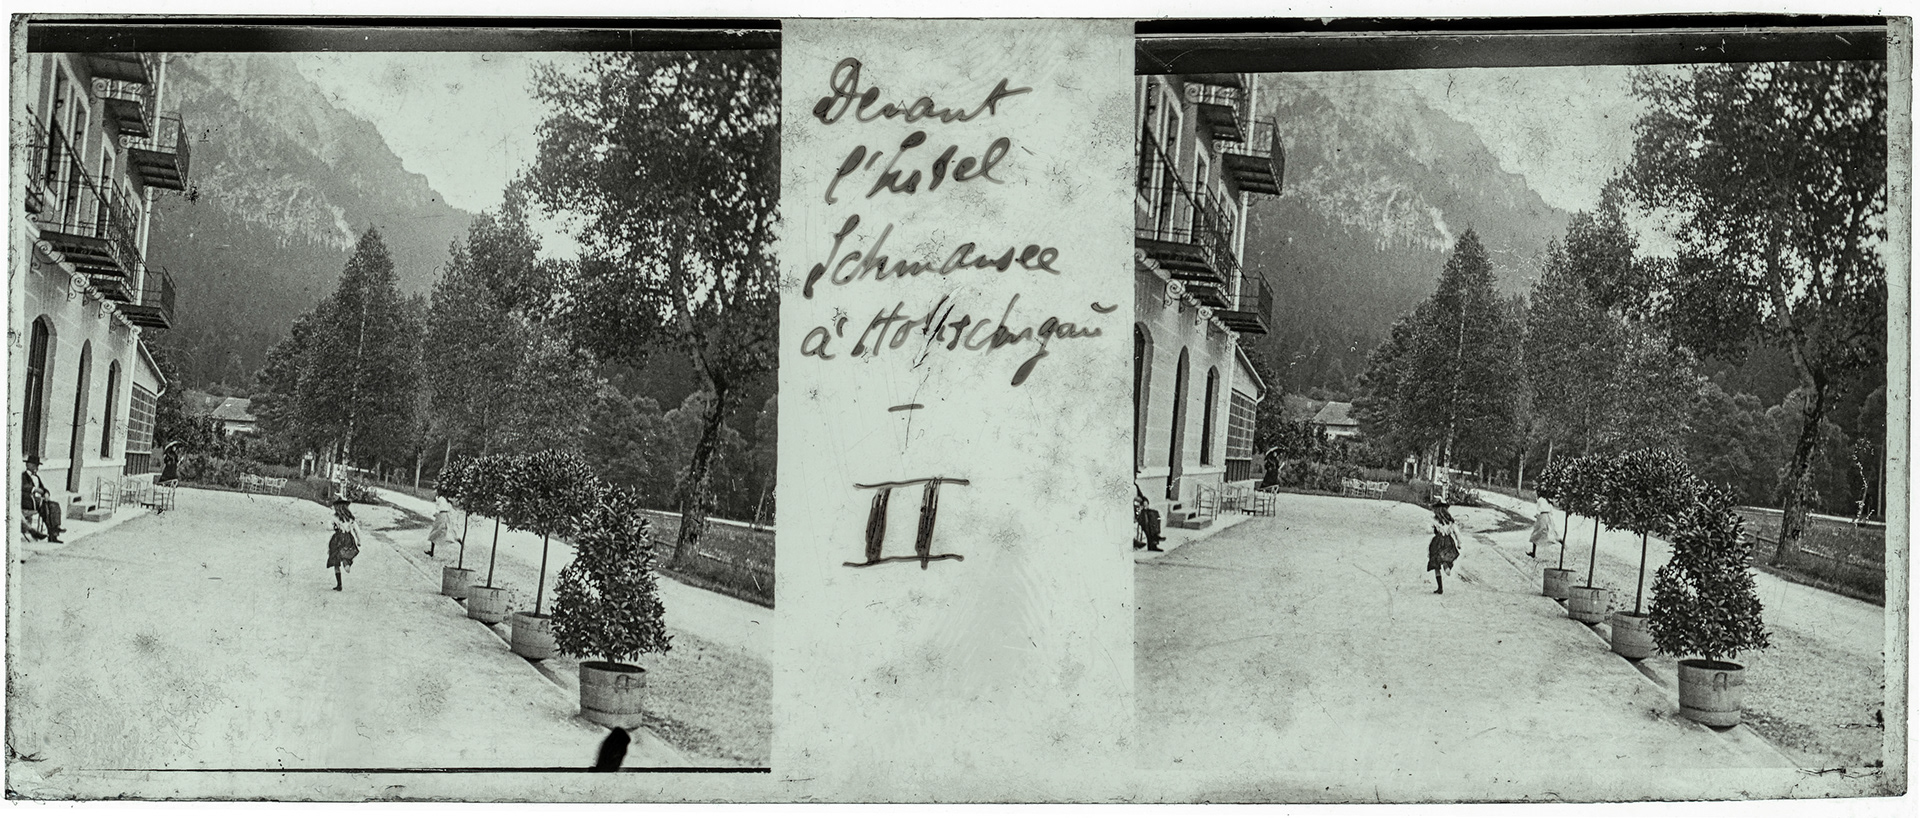 Devant
l'hotel
Schwansee
à Hohschwgaŭ
II